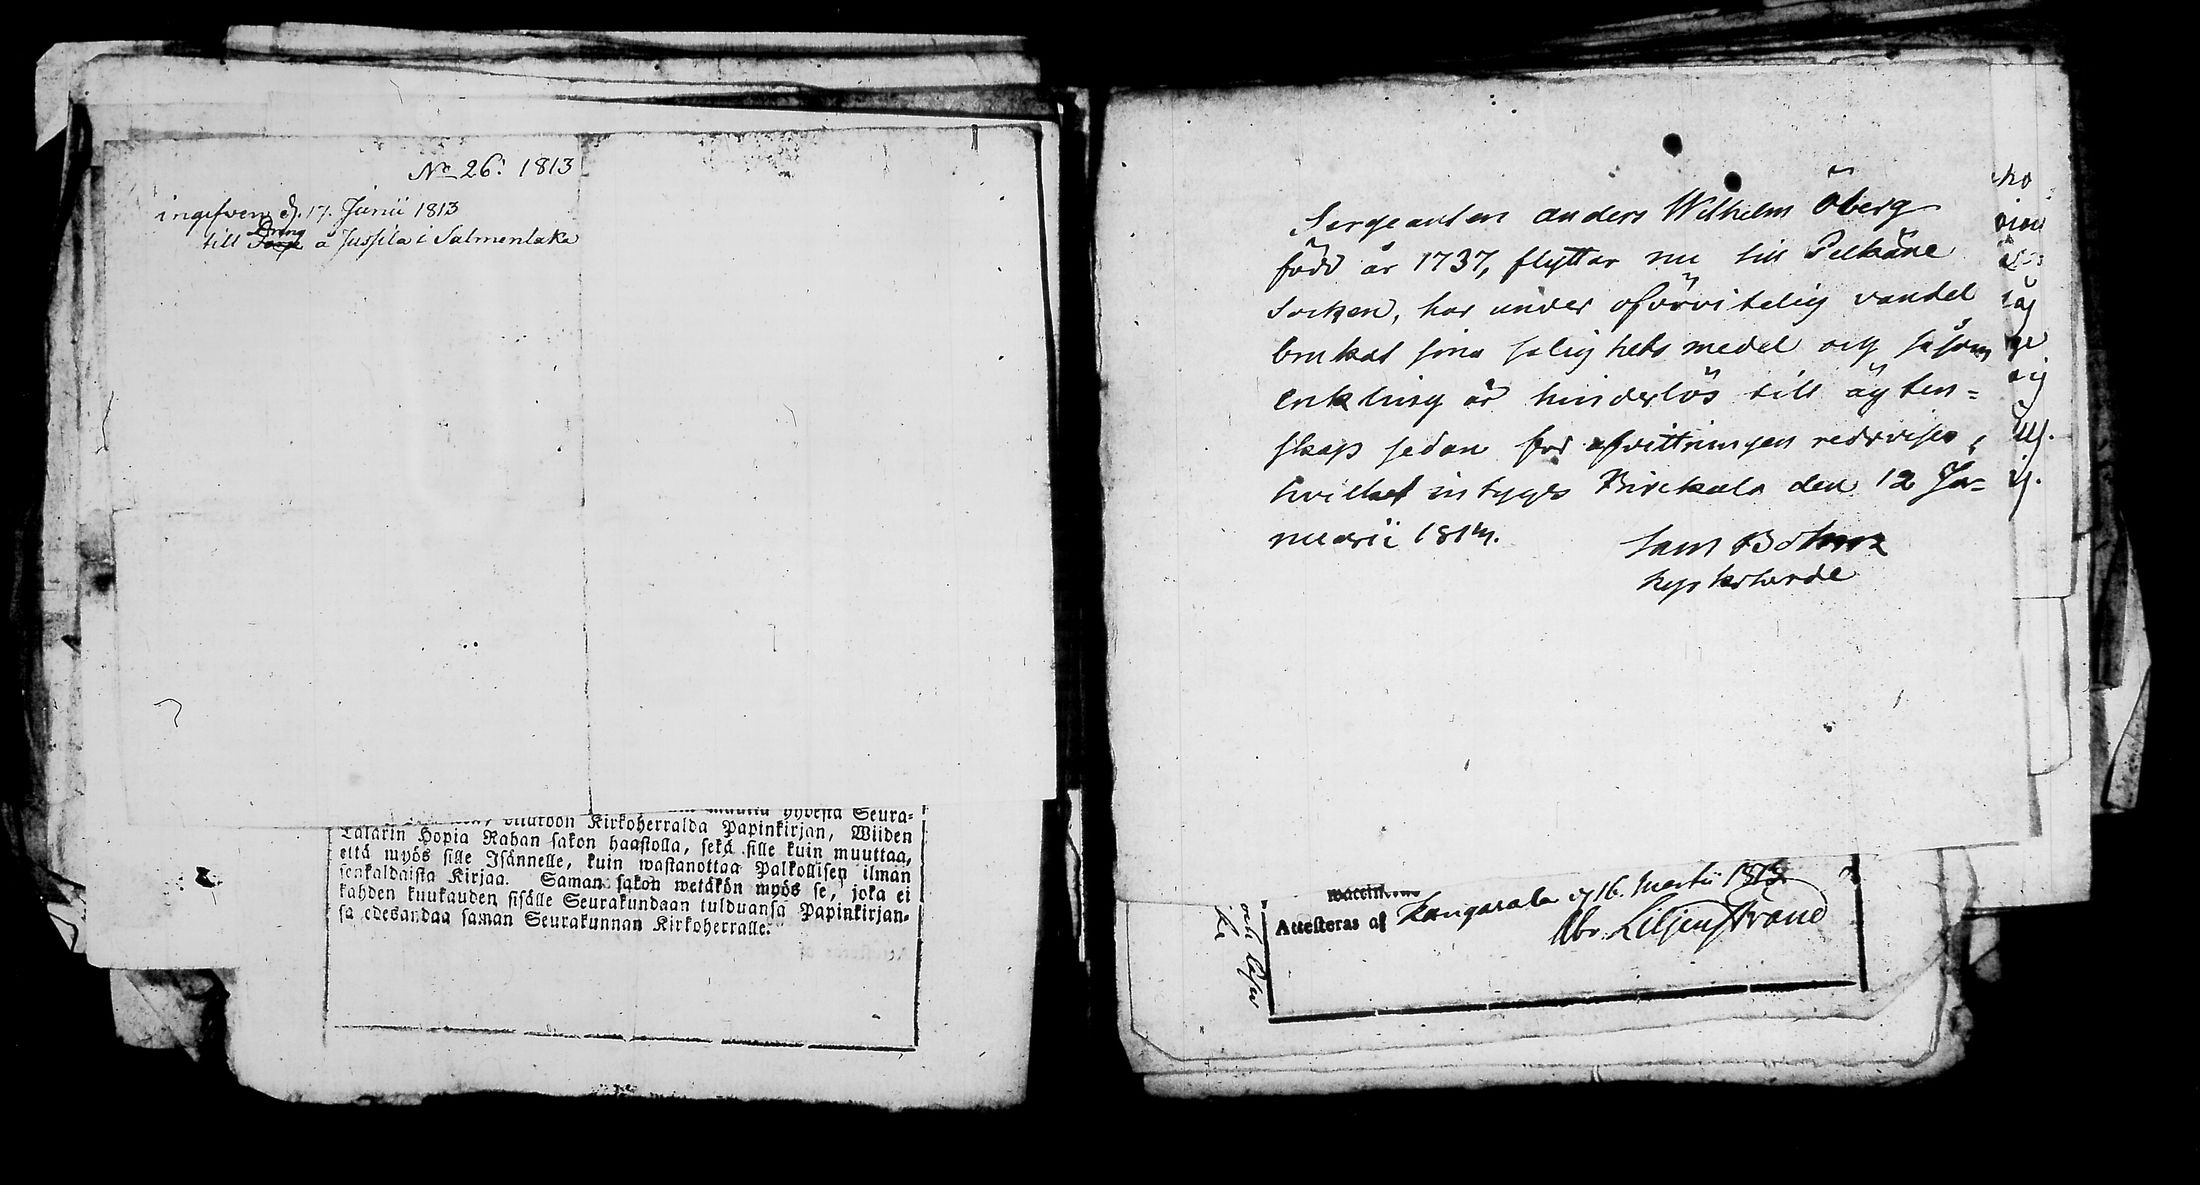 No 26: 1813
ingifven d. 17. Junii 1813
till Dräng å Jussila i Salmentaka
muutta yhdestä Seura-
Kirkoherralda Papinkirjan, Wiiden
Talarin Hopia Rahan sakon haastolla, sekä sille kuin muuttaa,
että myös sille Isännelle, kuin wastanottaa Palkollisen ilman
senkaldaista Kirjaa. Saman sakon wetäkön myös se, joka ei
kahden kuukauden sisälle Seurakundaan tulduansa Papinkirjan-
sa edesandaa saman Seurakunnan Kirkoherralle.
Sergeanten Anders Wilhelm Öberg
född år 1737, flyttar nu till Pelkäne
Socken, har under oförvitelig vandel
brukat sina salighets medel och såsom
enkling är hinderlös till ägten=
skap sedan för afvittringen redovises,
hvilket intyges Birckala den 12 Ja=
nuarii 1814.
Sam Bohm
Kyrkoherde
Attesteras af Kangasala d 16. Martii 1813
Abr. Liljenstrand